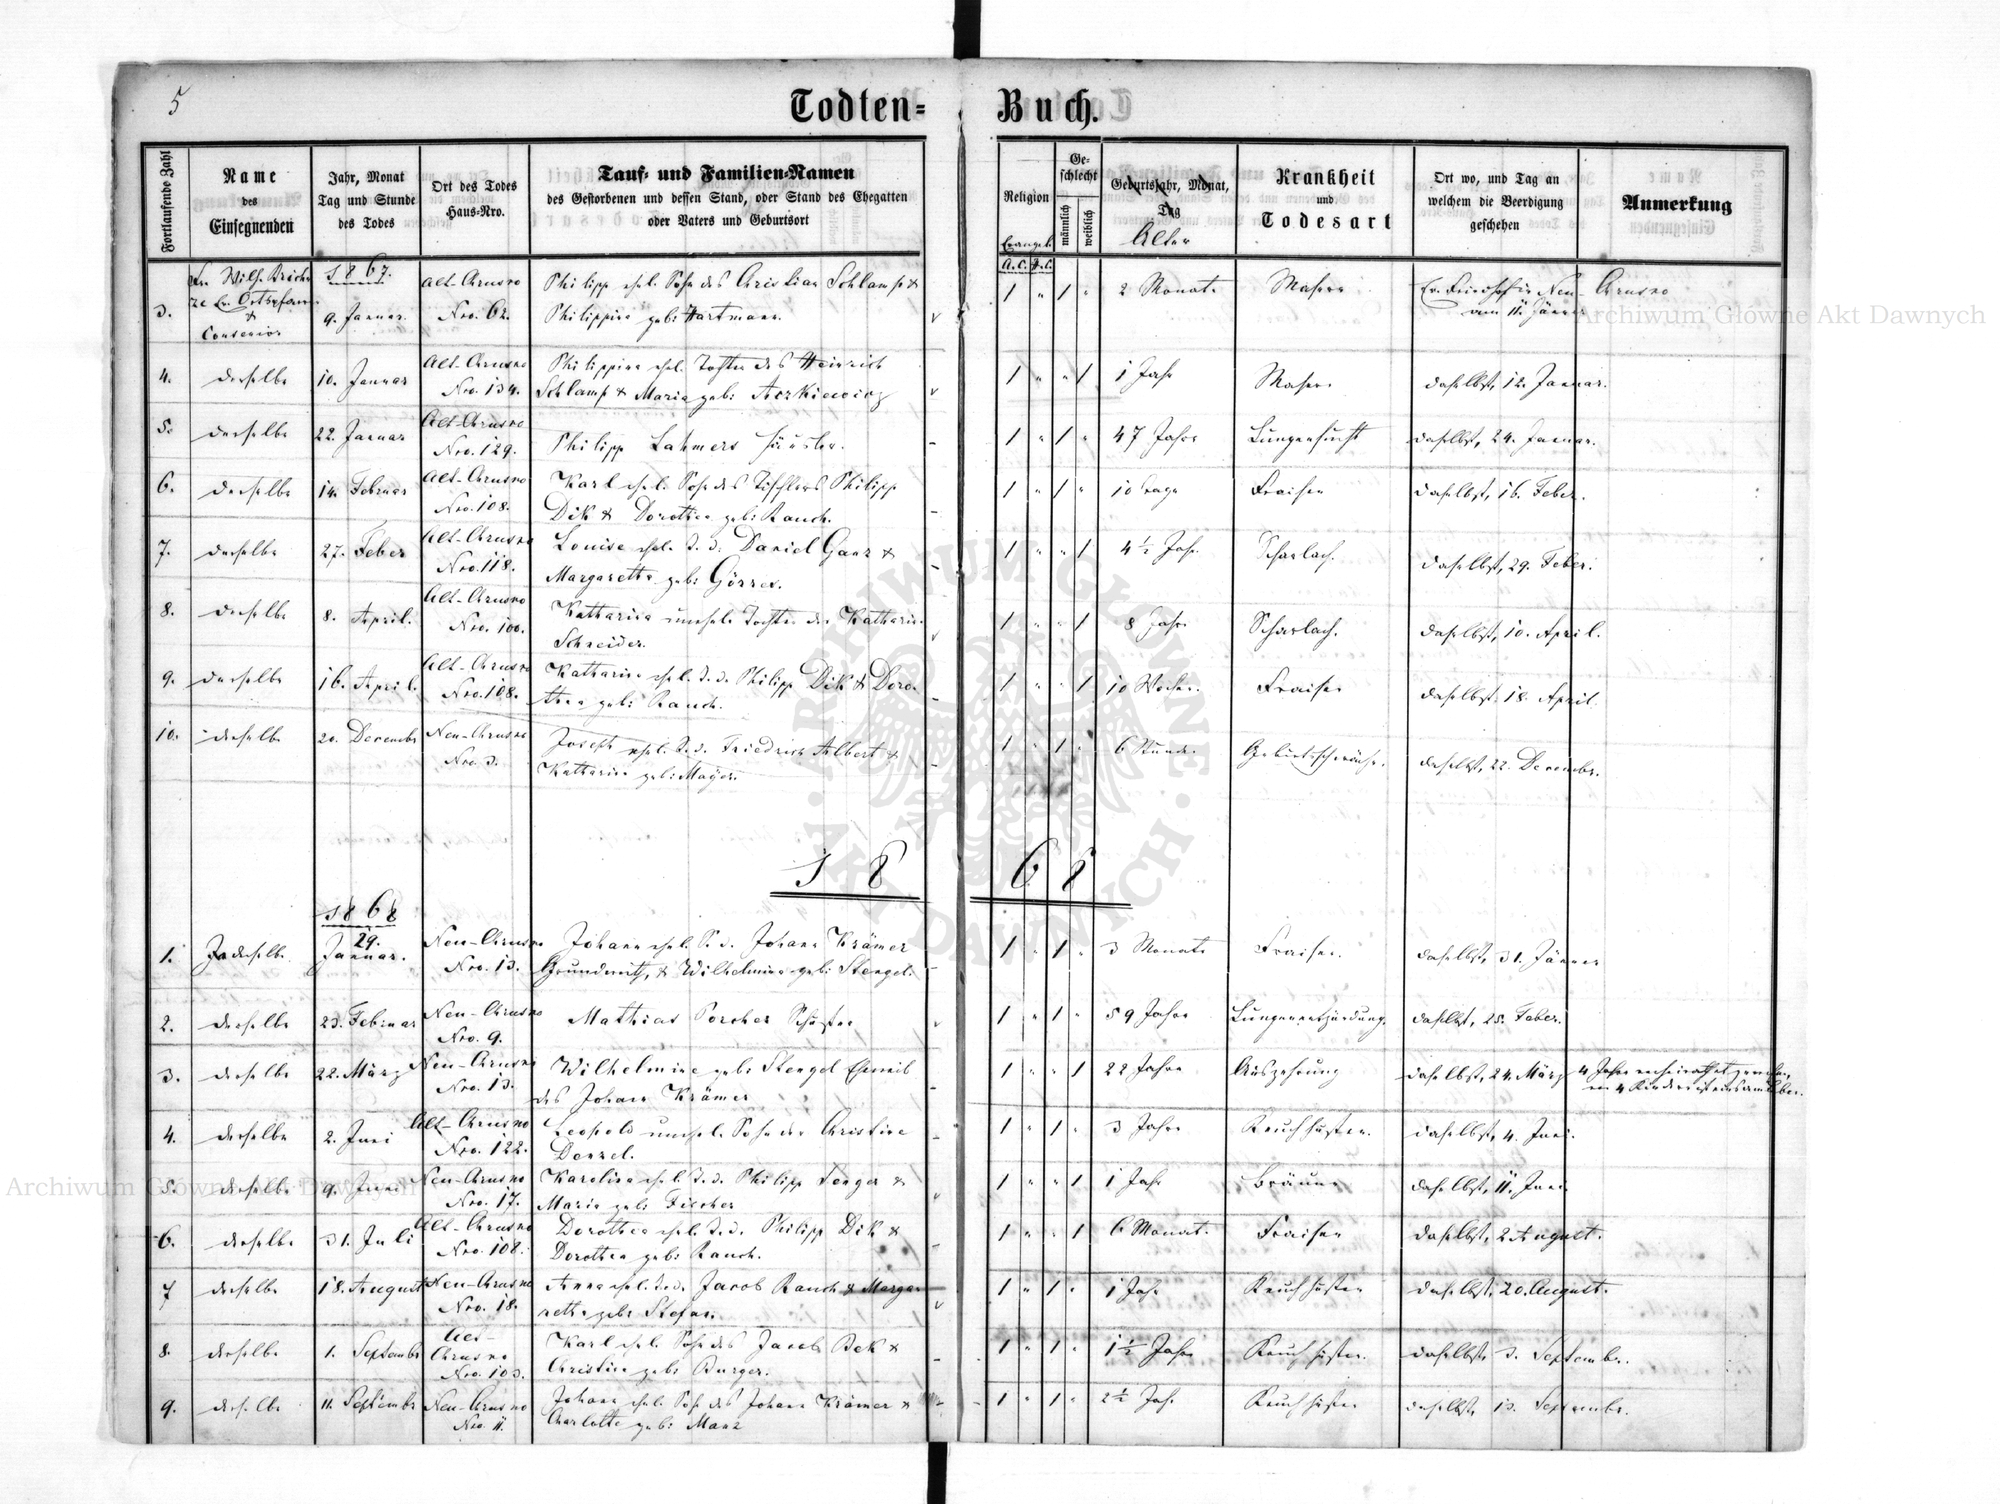 5
Todten-Buch.
Fortlaufende Zahl
Name
des
Einsegnenden
Jahr, Monat
Tag und Stunde
des Todes
Ort des Todes
Haus-Nro.
Tauf- und Familien-Namen
des Gestorbenen und dessen Stand, oder Stand des Ehegatten
oder Vaters und Geburtsort
Religion
Evangel.
A.C. H.C.
Geschlecht
männlich
weiblich
Geburtsjahr, Monat,
Tag
Alter
Krankheit
und
Todesart
Ort wo, und Tag an
welchem die Beerdigung
geschehen
Anmerkung
1867.
3. Ev. Ortspfarrer & Consenior 9. Januar. Alt-Chrusno Nro. 62.
Philipp ehel. Sohn des Christian Schlamp &
Philippine geb: Hartmann.
1 " 1 " 2 Monate Masern Ev. Friedhof in Neu-Chrusno
am 11. Jänner
4. derselbe 10. Januar Alt-Chrusno Nro. 134.
Philippine ehel. Tochter des Heinrich
Schlamp & Maria geb:
1 " " 1 1 Jahr Masern daselbst, 12. Januar.
5. derselbe 22. Januar Alt-Chrusno Nro. 129.
Philipp Lahmers Häusler.
1 " 1 " 47 Jahre Lungensucht daselbst, 24. Januar.
6. derselbe 14. Februar Alt-Chrusno Nro. 108.
Karl ehel. Sohn des Tischlers Philipp
Dik & Dorothea geb: Rauch.
1 " 1 " 10 Tage Fraisen daselbst, 16. Feber.
7. derselbe 27. Feber Alt-Chrusno Nro. 118.
Louise ehel. T. d. Daniel Ganz &
Margaretha geb: Görres.
1 " " 1 4½ Jahr Scharlach. daselbst, 29. Feber.
8. derselbe 8. April. Alt-Chrusno Nro. 100.
Katharina unehel. Tochter der Katharina
Schneider.
1 " " 1 8 Jahre Scharlach. daselbst, 10. April.
9. derselbe 16. April. Alt-Chrusno Nro. 108.
Katharina ehel. T. d. Philipp Dik & Doro-
thea geb: Rauch.
1 " " 1 10 Wochen. Fraisen daselbst, 18. April.
10. derselbe 20. December Neu-Chrusno Nro. 3.
Joseph ehel. S. d. Friedrich Albert &
Katharina geb: Mayer.
1 " 1 " 6 Stunden Geburtsschwäche. daselbst, 22. December.
1868
1868
1. derselbe 29. Januar. Neu-Chrusno Nro. 13.
Johann ehel. S. d. Johann Krämer
Grundwirth, & Wilhelmine geb: Stengel.
1 " 1 " 3 Monate Fraisen. daselbst, 31. Jänner
2. derselbe 23. Februar Neu-Chrusno Nro. 9.
Mathias Porcher Schuster
1 " 1 " 59 Jahre Lungenentzündung. daselbst, 25. Feber.
3. derselbe 22. März Neu-Chrusno Nro. 13.
Wilhelmine geb: Stengel Eheweib
des Johann Krämer
1 " " 1 22 Jahre Auszehrung daselbst, 24. März
4 Jahre verheirathet gewesen,
4. derselbe 2. Juni Alt-Chrusno Nro. 122.
Leopold unehel. Sohn der Christine
Denzel.
1 " 1 " 3 Jahre Keuchhusten. daselbst, 4. Juni.
5. derselbe 9. Juni Neu-Chrusno Nro. 17.
Karolina ehel. T. d. Philipp Senger &
Maria geb: Fischer
1 " " 1 1 Jahr Bräune daselbst, 11. Juni
6. derselbe 31. Juli Alt-Chrusno Nro. 108.
Dorothea ehel. T. d. Philipp Dik &
Dorothea geb: Rauch.
1 " " 1 6 Monat. Fraisen daselbst, 2 August.
7 derselbe 18. August Neu-Chrusno Nro. 18.
Anna ehel. T. d. Jacob Rauch & Marga-
retha geb: Stefan.
1 " 1 " 1 Jahr Keuchhusten daselbst, 20. August.
8. derselbe 1. September Alt-Chrusno Nro. 103.
Karl ehel. Sohn des Jacob Bek &
Christina geb: Burger.
1 " 1 " 1½ Jahre Keuchhusten. daselbst, 3. September.
9. derselbe 11. September Neu-Chrusno Nro. 11.
Johann ehel. Sohn des Johann Krämer &
Charlotte geb: Manz
1 " 1 " 2½ Jahr Keuchhusten daselbst, 13. September.
Archiwum Główne Akt Dawnych
Archiwum Główne Akt Dawnych
ARCHIWUM GŁÓWNE · AKT DAWNYCH ·